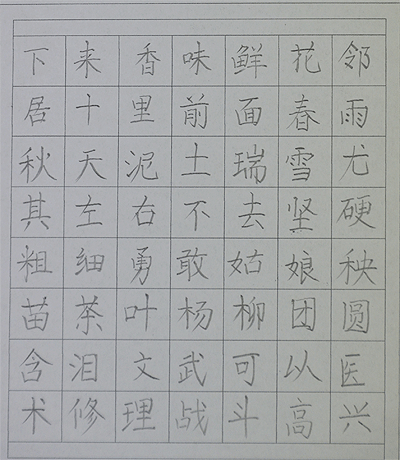 下来香味鲜花邻
居十里前面春雨
秋天泥土瑞雪尤
其左右不去坚硬
粗细勇敢姑娘秧
苗茶叶杨柳团圆
含泪文武可以医
术修理战斗高兴